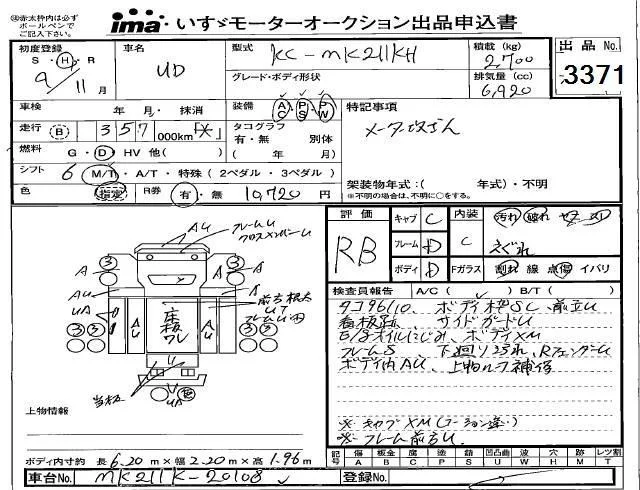 ※赤太枠内は必ず
ボールペンで
ご記入下さい。
ima いすゞモーターオークション出品申込書
初度登録
S・H・R
9/11 月
車名
UD
型式
KC-MK211KH
グレード・ボディ形状
積載(kg)
2,700
排気量(cc)
6,920
出品No.
3371
車検 年 月・抹消
装備 AC PS PW
特記事項
メーター改ざん
走行 B 357 000km *
タコグラフ
有・無 別体
( 年 月)
燃料 G・D・HV 他( )
シフト 6 M/T・A/T・特殊(2ペダル・3ペダル)
架装物年式:( 年式)・不明
※不明の場合は、不明に○をする。
色 指定 R券 有・無 10,720 円
評価
RB
キャブ C
フレーム D
ボディ D
内装
C
汚れ 破れ
Fガラス 割れ 線 点傷 イバリ
検査員報告 A/C( ) B/T( )
タコ96/10、ボディ枠SC
看板跡、サイドガードU
E/gオイルにじみ、ボディXM
フレームS
ボディ内AU、上物ルーフ補修
※フレーム前方U
AU
フレームU
クロスメンバーU
3
3
A
A
AU
UA
A
AU
床板
ワレ
AU
U
3 3
3 3
当板
UA
上物情報
ボディ内寸約 長 6.20 m×幅 2.20 m×高 1.96 m
記号 傷 A 板金 B 腐 C 塗 P 錆 S 凹凸曲 U 波 W 穴 H 欠 M レツ割 T
車台No. MK211K-20108
登録No.